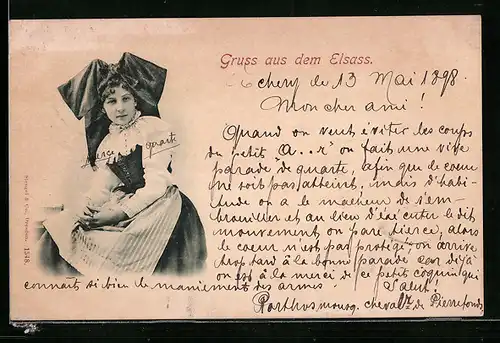 Gruss aus dem Elsass.
chery de 13 Mai 1898.
Mon cher ami!
Quand on veut éviter les coups
du petit "A...r" on fait une vive
parade "de quarte, afin que le coeur
ne soit pas atteint, mais d'habi-
tude on a le malheur de s'em-
brouiller et au lieu d'éxécuter le dit
mouvement on pare tierce, alors
le coeur n'est pas protégé, on arrive
trop tard à la bonne parade car déjà
on est à la merci de ce petit coquin qui
connaît si bien le maniement des armes. Salut!
Porthos mousq. chevalr de Pierrefonds
tierce quart
1248.